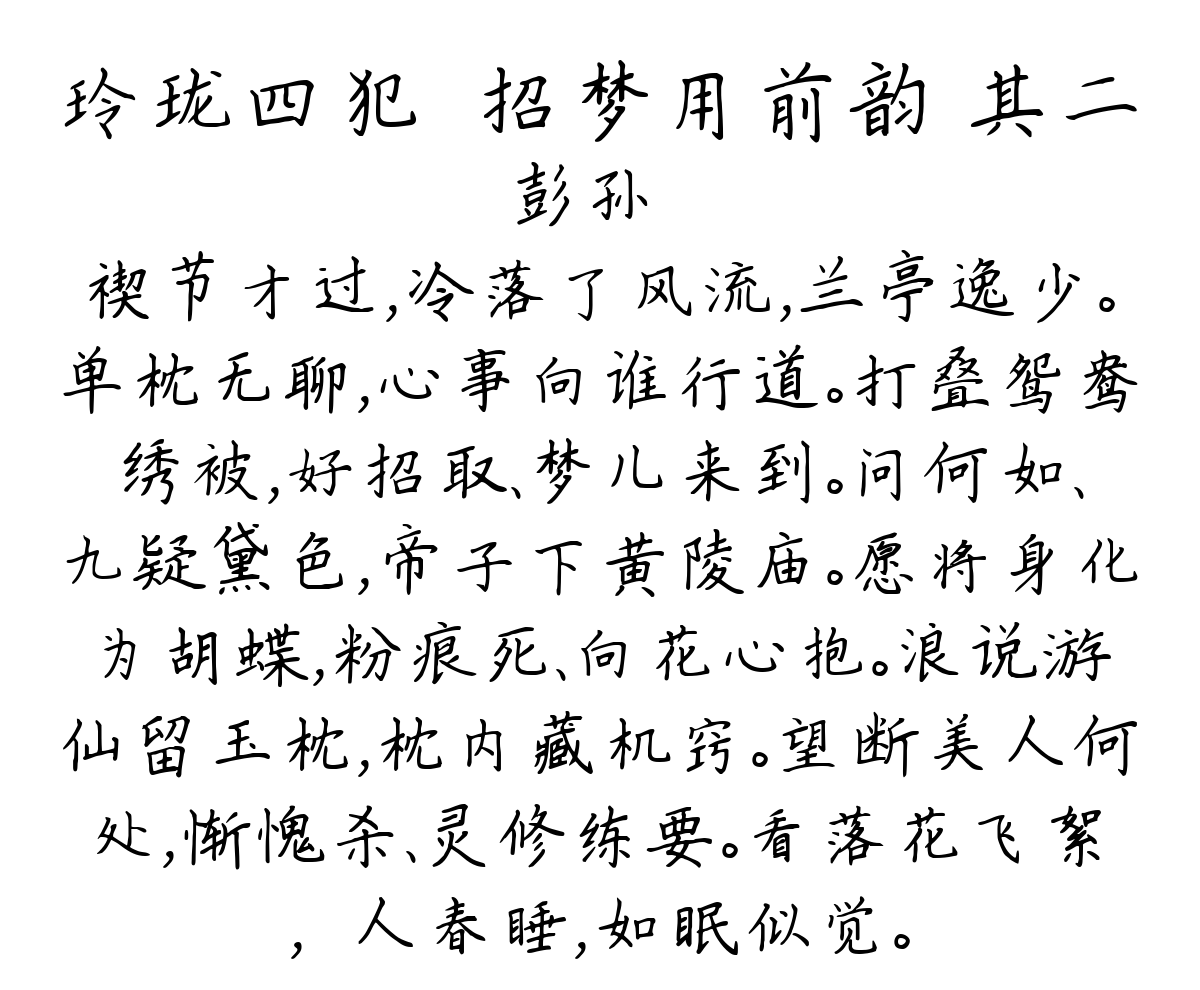 玲珑四犯 招梦用前韵 其二
彭孙
禊节才过,冷落了风流,兰亭逸少。
单枕无聊,心事向谁行道。打叠鸳鸯
绣被,好招取、梦儿来到。问何如、
九疑黛色,帝子下黄陵庙。愿将身化
为胡蝶,粉痕死、向花心抱。浪说游
仙留玉枕,枕内藏机窍。望断美人何
处,惭愧杀、灵修练要。看落花飞絮
，人春睡,如眠似觉。